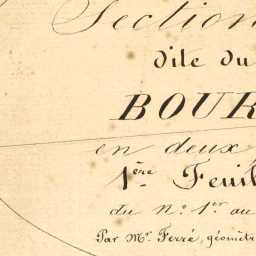 Section
dite du
BOUR
en deux
1ère Feuil
du n.o 1.er au
Par Mr. Ferré, géomètr